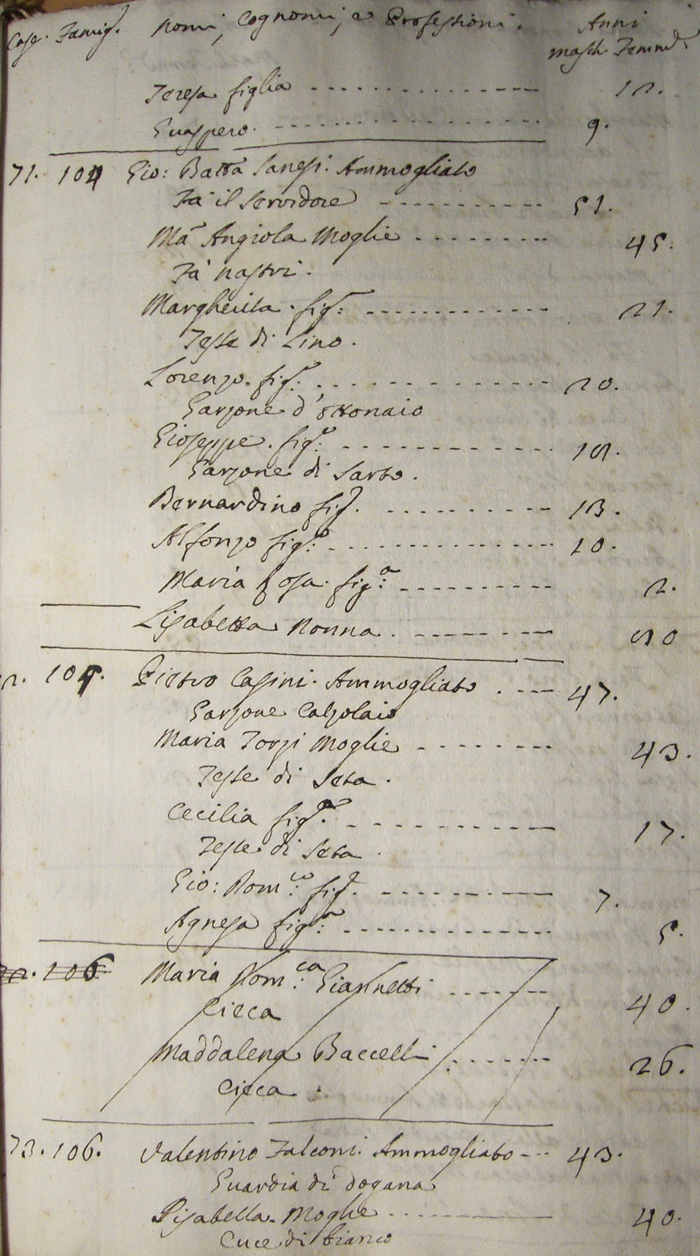 Case. Famig. Nomi, Cognomi, e Professioni. Anni
masch. Femme
Teresa figlia 12.
Guaspero. 9.
71. 104 Gio: Batta Sanesi. Ammogliato
Fà il servidore 51.
Ma Angiola Moglie 45.
Fà nastri.
Margherita. figa: 21.
Tesse di Lino.
Lorenzo. figo: 20.
Garzone d'ottonaio
Gioseppe. figo:
Garzone di Sarto.
Bernardino fig. 13.
Alfonzo figo: 10.
Maria Rosa. figa: 2.
Lisabetta Nonna.
105. Pietro Casini. Ammogliato 47.
Garzone Calzolaio
Maria Torzi Moglie 43.
Tesse di Seta.
Cecilia figa: 17.
Tesse di Seta.
Gio: Domco: fig. 7.
Agnesa figa: 5.
106 Maria Domca: Giannetti 40.
Cieca
Maddalena Baccelli 26.
Cieca.
73. 106. Valentino Falconi. Ammogliato 43.
Guardia di dogana
Lisabetta. Moglie 40.
Cuce di bianco